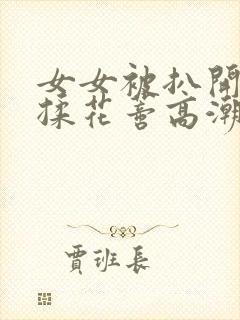 女女被扒開
揉花蒂高潮
賈班長